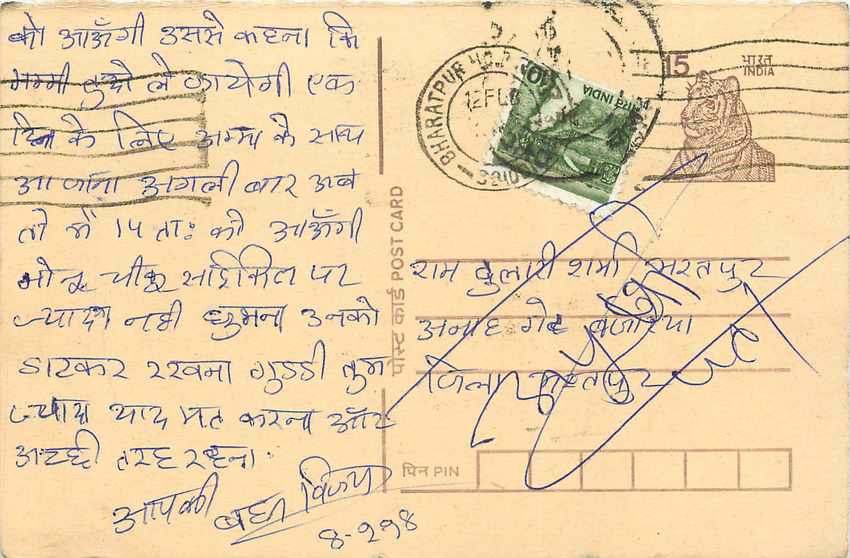 को आऊँगी उससे कहना कि
मम्मी तुझे ले जायेगी एक
दिन के लिए अम्मा के साथ
आ जाना अगली बार अब
तो मैं 14 ताः को आऊँगी
मोनू चीकू साईकिल पर
ज्यादा नही घुमना उनको
डाटकर रखना गुडडी तुम
ज्यादा याद मत करना और
अच्छी तरह रहना
आपकी
विजय
पोस्ट कार्ड POST CARD
BHARATPUR
12 FEB
15
भारत
INDIA
INDIA
राम दुलारी शर्मा भरतपुर
अनाह गेट बजरिया
जिला भरतपुर
पिन PIN